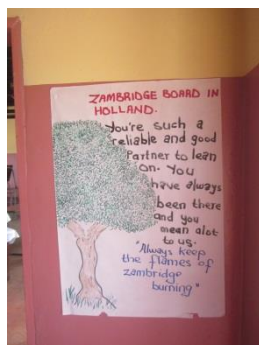 ZAMBRIDGE BOARD IN
HOLLAND.
You're such a
reliable and good
Partner to lean
on. You
have always
been there
and you
mean alot
to us.
"Always keep
the flames of
zambridge
burning"